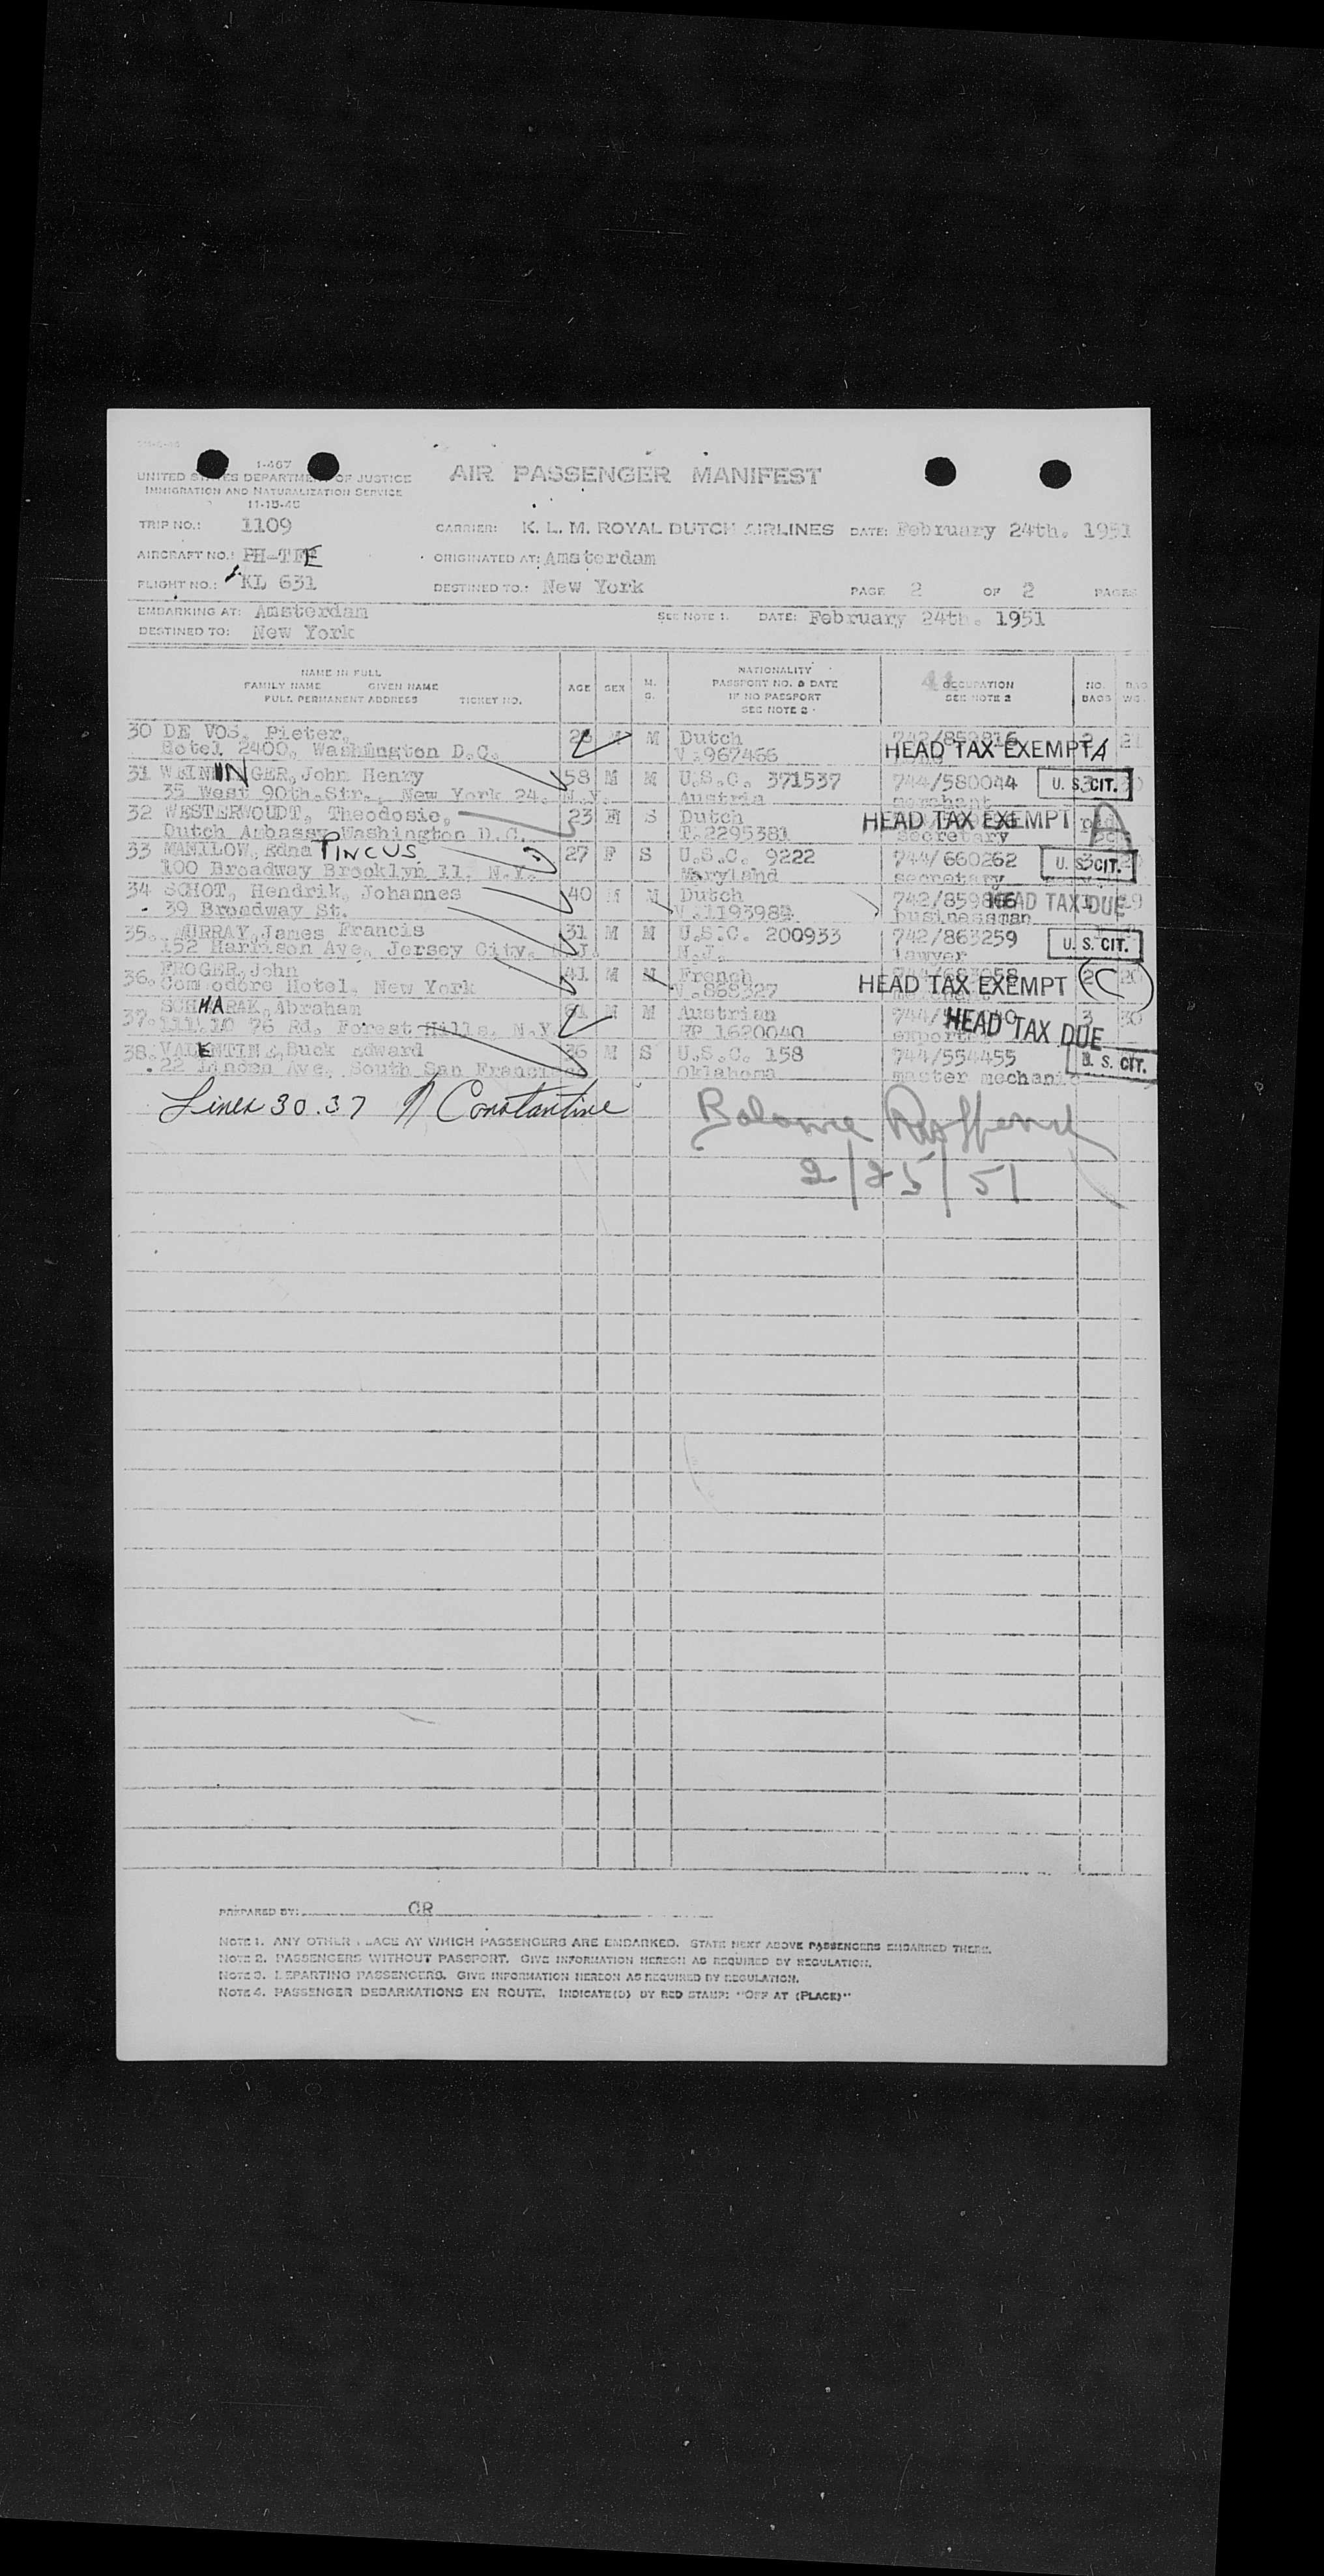 I-467
UNITED STATES DEPARTMENT OF JUSTICE
IMMIGRATION AND NATURALIZATION SERVICE
11-15-45
AIR PASSENGER MANIFEST
TRIP NO.: 1109
CARRIER: K. L. M. ROYAL DUTCH AIRLINES DATE: February 24th. 1951
AIRCRAFT NO.: PH-TFE
ORIGINATED AT: Amsterdam
FLIGHT NO.: KL 631
DESTINED TO.: New York
PAGE 2 OF 2 PAGES
EMBARKING AT: Amsterdam
SEE NOTE 1. DATE: February 24th. 1951
DESTINED TO: New York
NAME IN FULL
FAMILY NAME GIVEN NAME
FULL PERMANENT ADDRESS TICKET NO.
AGE SEX M. S.
NATIONALITY
PASSPORT NO. & DATE
IF NO PASSPORT
SEE NOTE 2
41
OCCUPATION
SEE NOTE 2
NO. BAGS
BAG WG.
30 DE VOS, Pieter, M Dutch
Hotel 2400, Washington D.C. V.967466 HEAD TAX EXEMPT A
31 WEININGER, John Henry 58 M M U.S.C. 371537 744/580044 U. S. CIT.
35 West 90th.Str., New York 24. N.Y. Austria merchant
32 WESTERWOUDT, Theodosie, 23 S Dutch HEAD TAX EXEMPT A
Dutch Ambassy Washington D.C. T.2295381 secretary
33 MAMILOW, Edna PINCUS 27 F S U.S.C. 9222 744/660262 U. S. CIT.
100 Broadway Brooklyn 11. N.Y. Maryland secretary
34 SCHOT, Hendrik, Johannes 40 M M Dutch HEAD TAX DUE
39 Broadway St. businessman
35. MURRAY, James Francis 31 M M U.S.C. 200933 742/863259 U. S. CIT.
152 Harrison Ave, Jersey City, N.J. N.J. lawyer
36. FROGER, John 41 M French HEAD TAX EXEMPT (C)
Commodore Hotel, New York V.868327
37. Abraham M M Austrian HEAD TAX DUE
76 Rd, Forest Hills, N.Y. RP 1620040
38. VALENTINE, Buck Edward 36 M S U.S.C. 158 744/554455 U. S. CIT.
22 Ave, South San Francisco Oklahoma master mechanic
Lines 30.37 Constantine
Balance
2/25/51
PREPARED BY: CR
NOTE 1. ANY OTHER PLACE AT WHICH PASSENGERS ARE EMBARKED. STATE NEXT ABOVE PASSENGERS EMBARKED THERE.
NOTE 2. PASSENGERS WITHOUT PASSPORT. GIVE INFORMATION HEREON AS REQUIRED BY REGULATION.
NOTE 3. DEPARTING PASSENGERS. GIVE INFORMATION HEREON AS REQUIRED BY REGULATION.
NOTE 4. PASSENGER DEBARKATIONS EN ROUTE. INDICATE(D) BY RED STAMP: "OFF AT (PLACE)"